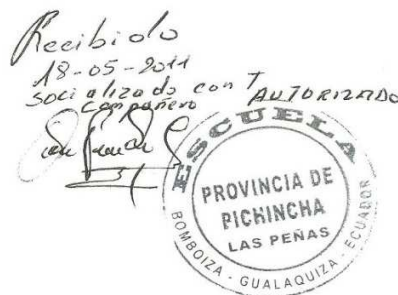 Recibido
18-05-2011
Socializado con
compañero
AUTORIZADO
ESCUELA
PROVINCIA DE
PICHINCHA
LAS PEÑAS
BOMBOIZA - GUALAQUIZA - ECUADOR